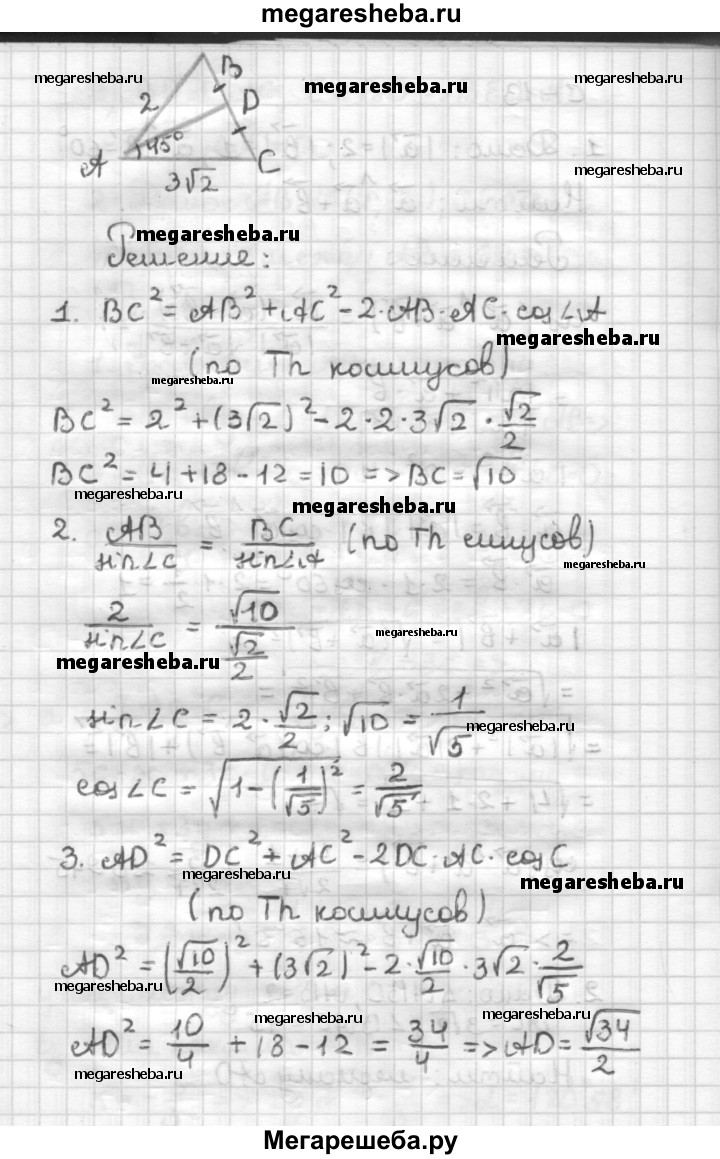 megaresheba.ru
megaresheba.ru
B
megaresheba.ru
megaresheba.ru
2
D
45°
A
C
megaresheba.ru
3√2
megaresheba.ru
Решение:
1. BC² = AB² + AC² - 2·AB·AC·cos∠A
megaresheba.ru
(по Th косинусов)
megaresheba.ru
BC² = 2² + (3√2)² - 2·2·3√2·√2/2
BC² = 4 + 18 - 12 = 10 => BC = √10
megaresheba.ru
megaresheba.ru
2. AB/sin∠C = BC/sin∠A (по Th синусов)
megaresheba.ru
2/sin∠C = √10/(√2/2)
megaresheba.ru
megaresheba.ru
sin∠C = 2·√2/2 ; √10 = 1/√5
megaresheba.ru
cos∠C = √(1-(1/√5)²) = 2/√5
3. AD² = DC² + AC² - 2DC·AC·cosC
megaresheba.ru
megaresheba.ru
(по Th косинусов)
AD² = (√10/2)² + (3√2)² - 2·√10/2·3√2·2/√5
megaresheba.ru
megaresheba.ru
megaresheba.ru
AD² = 10/4 + 18 - 12 = 34/4 => AD = √34/2
megaresheba.ru
megaresheba.ru
Мегарешеба.ру